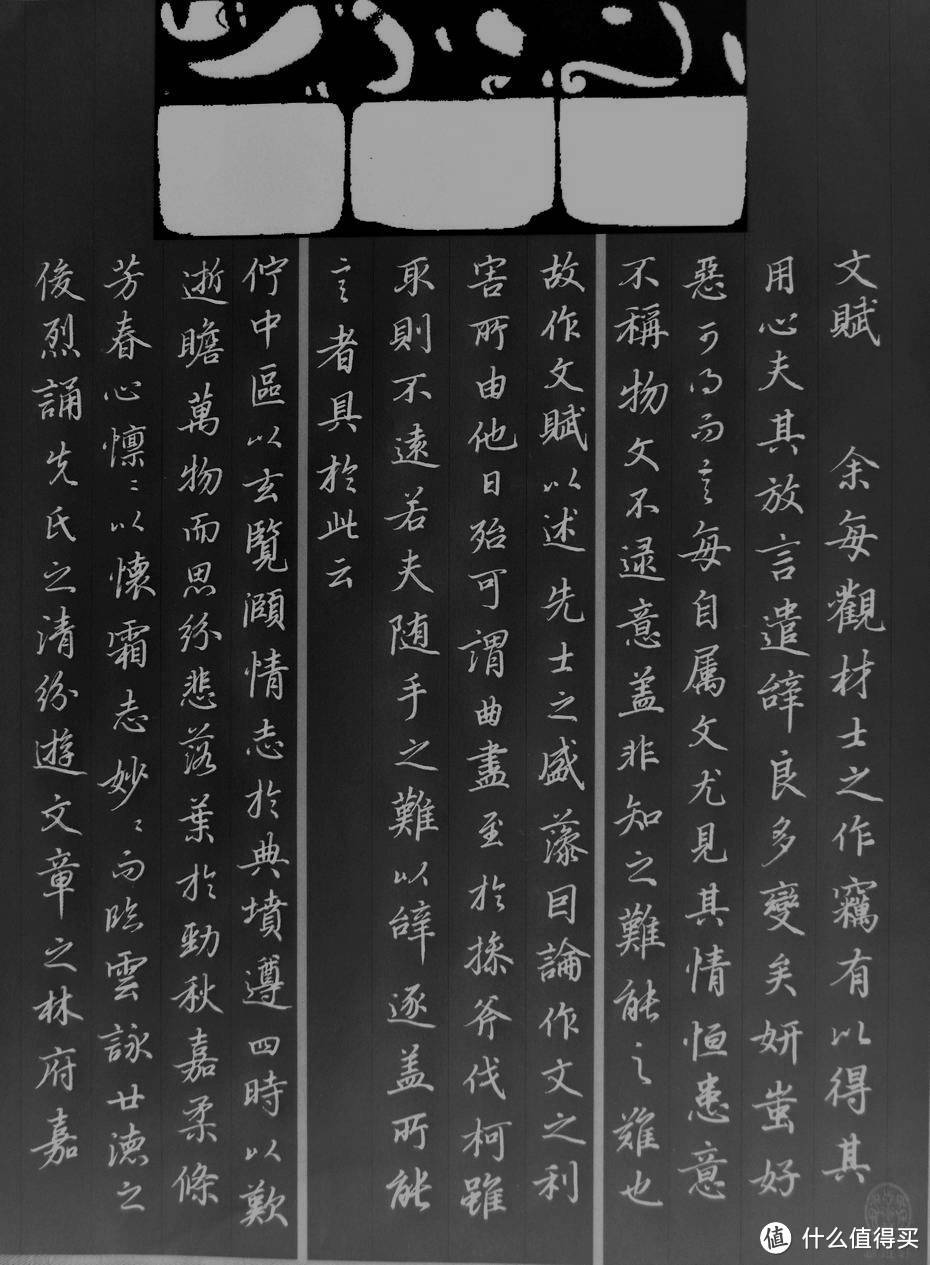 文賦　余每觀材士之作竊有以得其
用心夫其放言遣辝良多變矣妍蚩好
惡可得而言每自属文尤見其情恒患意
不稱物文不逮意盖非知之難能之難也
故作文賦以述先士之盛藻因論作文之利
害所由他日殆可謂曲盡至於操斧伐柯雖
取則不遠若夫随手之難以辝逐盖所能
言者具於此云
佇中區以玄覽頤情志於典墳遵四時以歎
逝瞻萬物而思紛悲落葉於勁秋嘉柔條
芳春心懍〻以懷霜志妙〻而臨雲詠廿德之
俊烈誦先氏之清紛遊文章之林府嘉
值 什么值得买